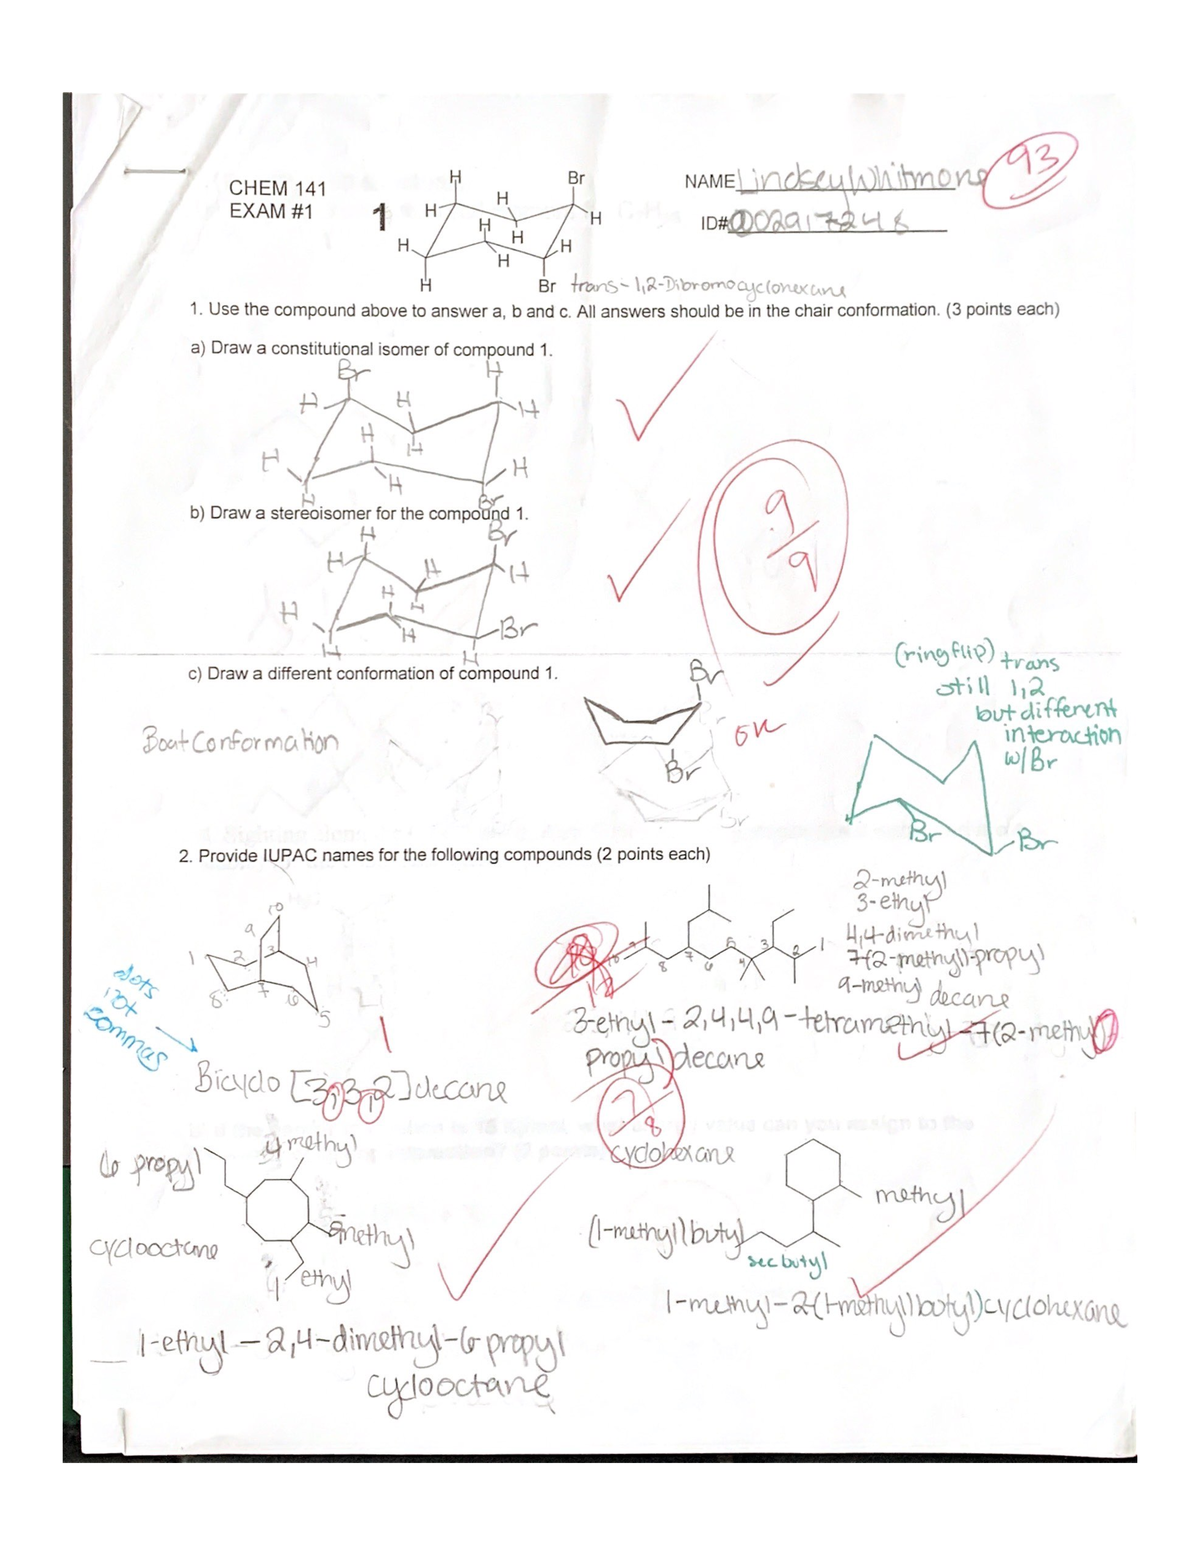 CHEM 141
EXAM #1
NAME Lindsey Whitmore
93
ID# 002917248
1
H Br
H H H
H H H
H H
H Br
trans-1,2-Dibromocyclohexane
1. Use the compound above to answer a, b and c. All answers should be in the chair conformation. (3 points each)
a) Draw a constitutional isomer of compound 1.
Br H
H H H
H H
H H H
H Br
b) Draw a stereoisomer for the compound 1.
H Br
H H H
H H
H H Br
H H
9/9
c) Draw a different conformation of compound 1.
Boat Conformation
Br
Br
OK
(ring flip) trans
still 1,2
but different
interaction
w/Br
Br Br
2. Provide IUPAC names for the following compounds (2 points each)
10
9
1 2 3 4
8 7 6
5
dots
not
commas
1
Bicyclo [3,3,2]decane
10 8 7 6 5 4 3 2 1
2-methyl
3-ethyl
4,4-dimethyl
7(2-methyl)-propyl
9-methyl decane
3-ethyl-2,4,4,9-tetramethyl-7(2-methyl
propyl)decane
7/8
6 propyl
4 methyl
methyl
cyclooctane
1 ethyl
1-ethyl-2,4-dimethyl-6 propyl
cyclooctane
cyclohexane
methyl
(1-methyl)butyl
sec butyl
1-methyl-2-(1-methyl)butyl)cyclohexane